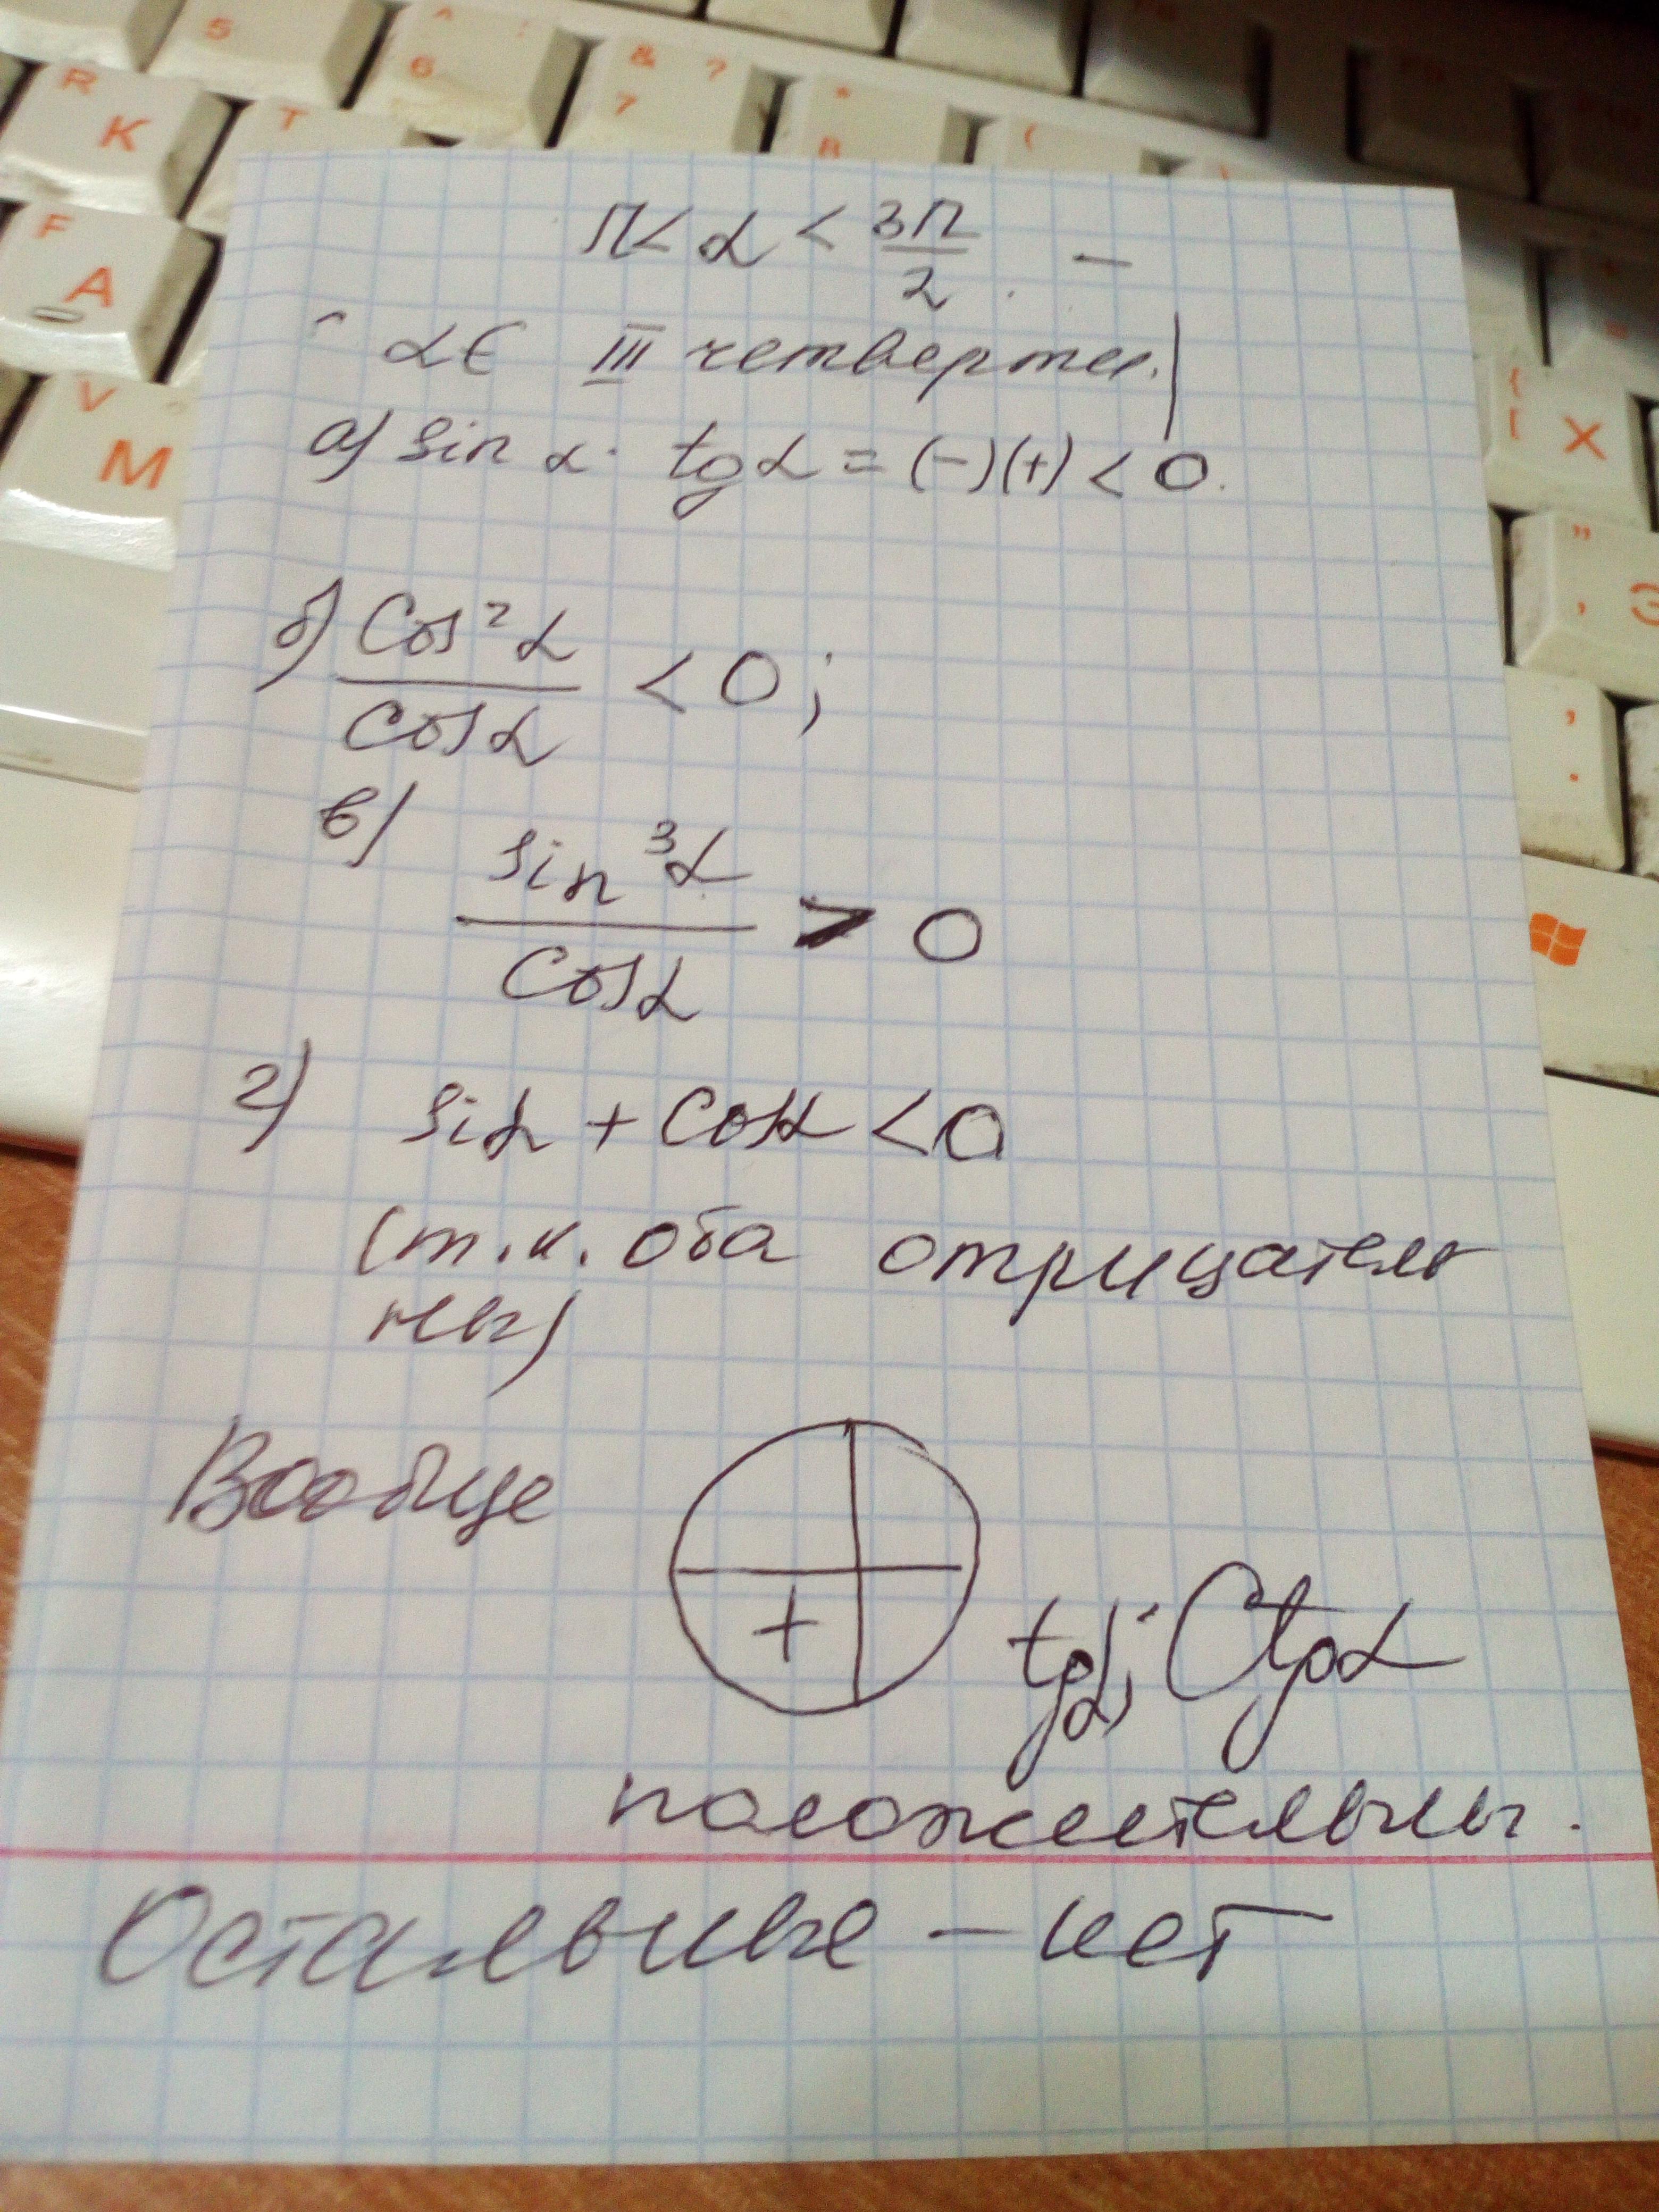 5
^
6
& ?
7
*
8
(
)
R
К
T
F
А
V
М
{
[
Х
"
'
Э
,
.
П < α < 3П/2. —
α ∈ III четверти.
а) sin α · tg α = (-)(+) < 0.
б) cos²α / cosα < 0;
в) sin³α / cosα > 0
г) sinα + cosα < 0
(т.к. оба отрицатель
ны)
Вообще
+
tgα; Ctgα
положительны.
Остальные – нет